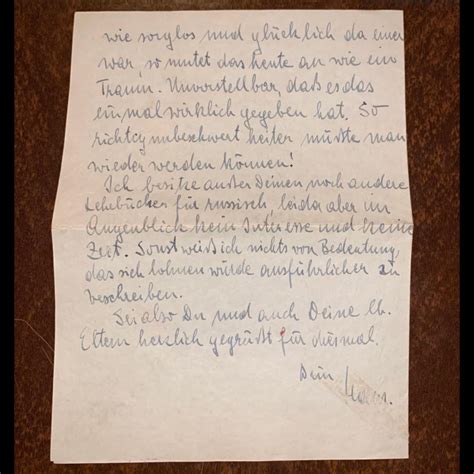 wie sorglos und glücklich da einer
war, so mutet das heute an wie ein
Traum. Unvorstellbar, daß es das
einmal wirklich gegeben hat. So
richtig unbeschwert heiter müßte man
wieder werden können!
Ich besitze außer Deinen noch andere
Lehrbücher für russisch, leider aber im
Augenblick kein Interesse und keine
Zeit. Sonst weiß ich nichts von Bedeutung,
das sich lohnen würde ausführlicher zu
beschreiben.
Sei also Du und auch Deine lb.
Eltern herzlich gegrüßt für diesmal.
Dein